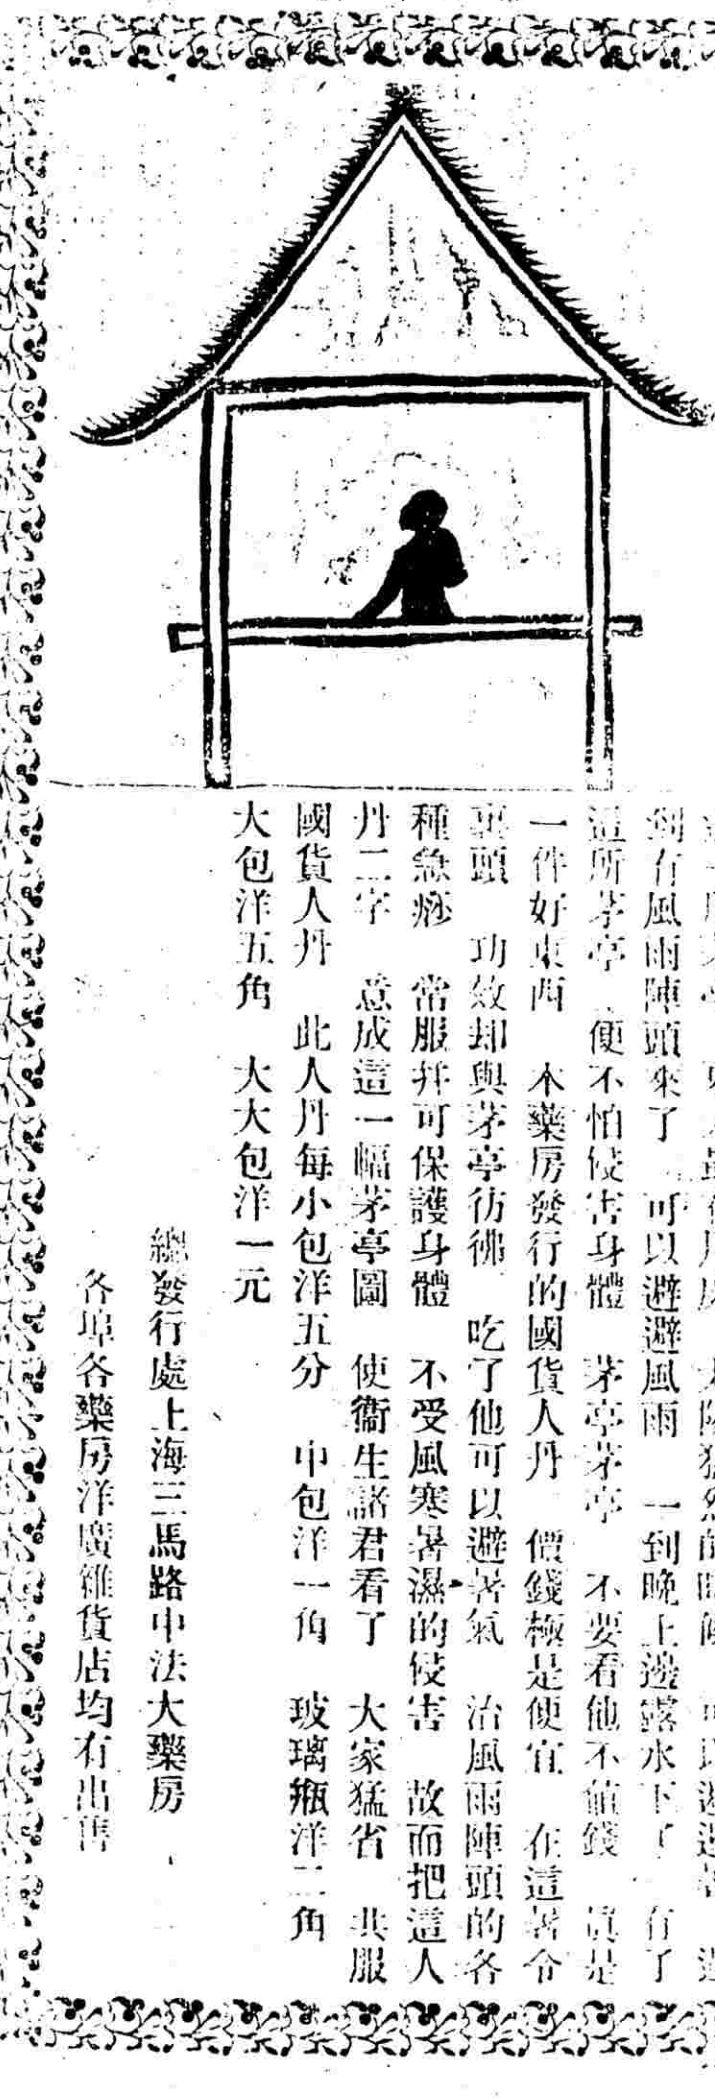 到有風雨陣頭來了　可以避避風雨　一到晚上邊露水下了　有了
這所茅亭　便不怕侵害身體　茅亭茅亭　不要看他不値錢　眞是
一件好東西　本藥房發行的國貨人丹　價錢極是便宜　在這暑令
裏頭　功效却與茅亭彷彿　吃了他可以避暑氣　治風雨陣頭的各
種急痧　常服幷可保護身體　不受風寒暑濕的侵害　故而把這人
丹二字　意成這一幅茅亭圖　使衞生諸君看了　大家猛省　共服
國貨人丹　此人丹每小包洋五分　中包洋一角　玻璃瓶洋二角
大包洋五角　大大包洋一元
總發行處上海三馬路中法大藥房
各埠各藥房洋廣雜貨店均有出售